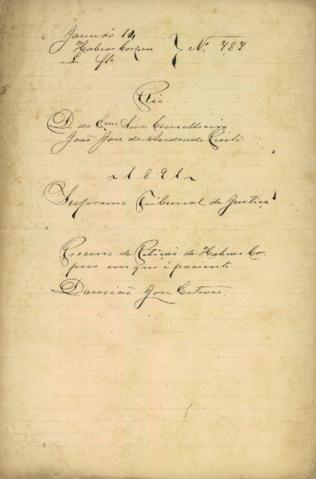 Janeiro 14
Habeas Corpus } Nº 787
Rio
D. ao Exmo Snr. Conselheiro
João José de Andrade Pinto
1891
Supremo Tribunal de Justiça
Processo de Petição de Habeas Cor-
pus em que é paciente
Damião José Esteves.